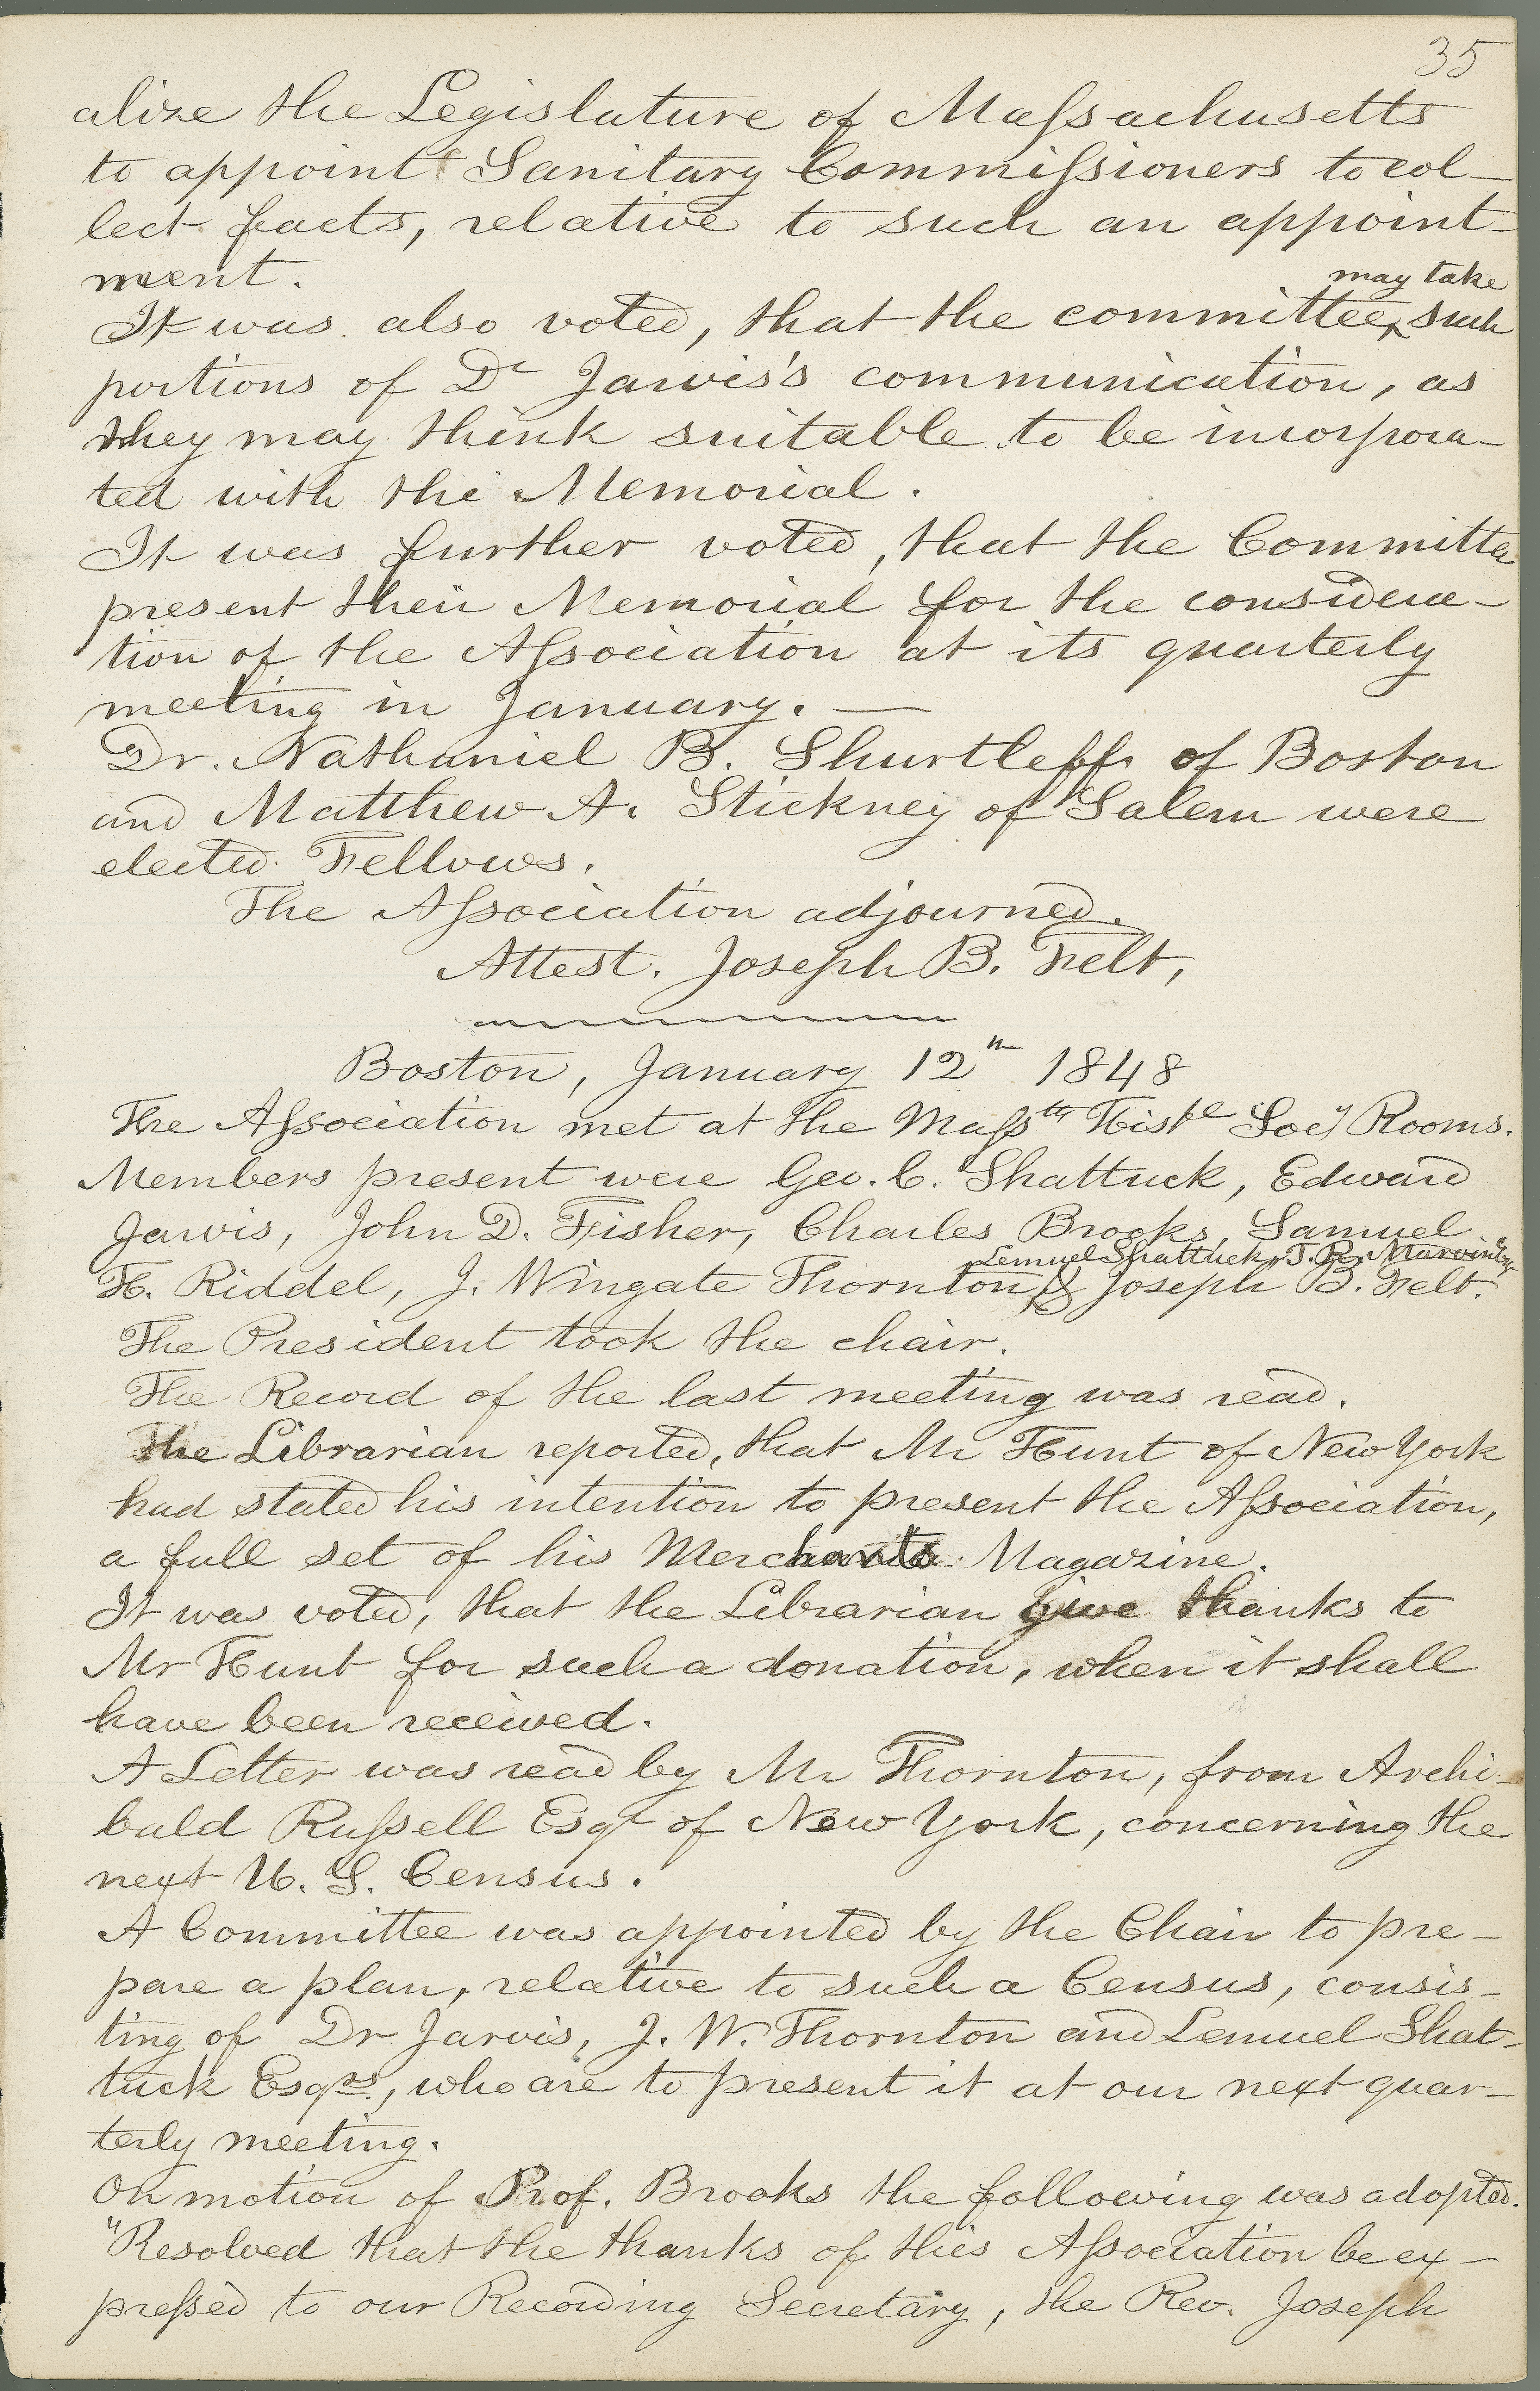 35
alize the Legislature of Massachusetts
to appoint Sanitary Commissioners to col-
lect facts, relative to such an appoint-
ment.
may take
It was also voted, that the committee‸ such
portions of Dr Jarvis's communication, as
they may think suitable to be incorpora-
ted with the Memorial.
It was further voted, that the Committee
present their Memorial for the considera-
tion of the Association at its quarterly
meeting in January. —
Dr. Nathaniel B. Shurtleff of Boston
and Matthew A. Stickney of Salem were
elected Fellows.
The Association adjourned.
Attest. Joseph B. Felt,
Boston, January 12th 1848
The Association met at the Massts Histl Socy Rooms.
Members present were Geo. C. Shattuck, Edward
Jarvis, John D. Fisher, Charles Brooks, Samuel
Lemuel Shattuck, T. R. Marvin
H. Riddel, J. Wingate Thornton,‸ & Joseph B. Felt.
The President took the chair.
The Record of the last meeting was read.
The Librarian reported, that Mr Hunt of New York
had stated his intention to present the Association,
a full set of his Merchants Magazine.
It was voted, that the Librarian give thanks to
Mr Hunt for such a donation, when it shall
have been received.
A Letter was read by Mr Thornton, from Archi-
bald Russell Esqr of New York, concerning the
next U. S. Census.
A Committee was appointed by the Chair to pre-
pare a plan, relative to such a Census, consis-
ting of Dr Jarvis, J. W. Thornton and Lemuel Shat-
tuck Esqrs, who are to present it at our next quar-
terly meeting.
On motion of Prof. Brooks the following was adopted.
"Resolved that the thanks of this Association be ex-
pressed to our Recording Secretary, the Rev. Joseph